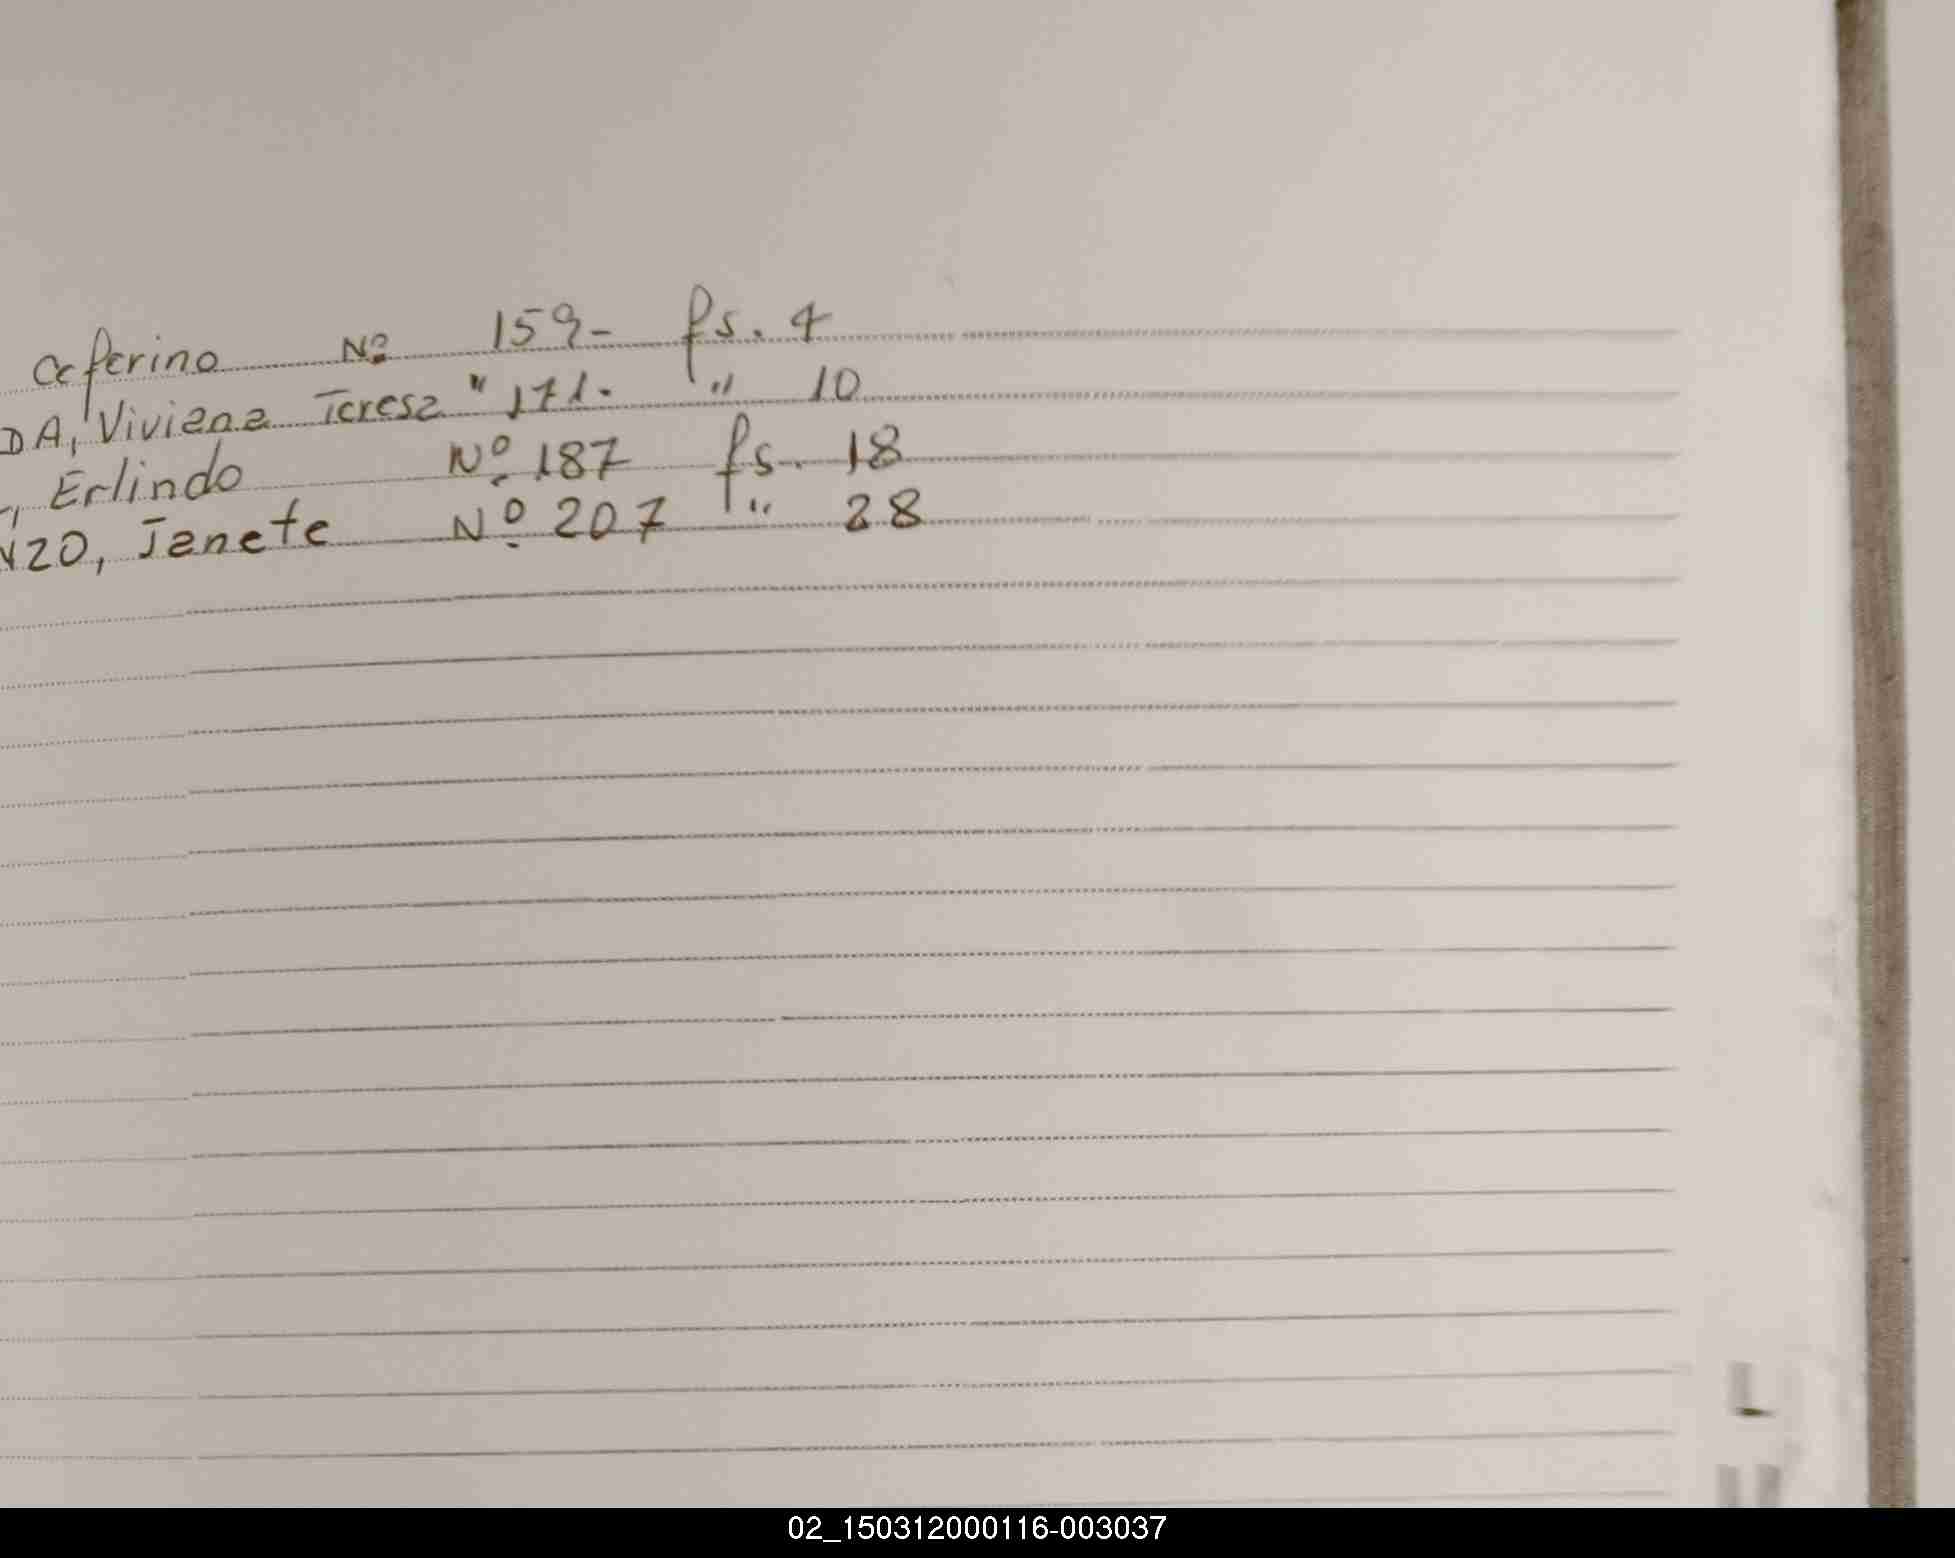 Ceferino Nº 159- fs. 4
DA, Viviana Teresa " 171. " 10
, Erlindo Nº 187 fs. 18
NZO, Janete Nº 207 " 28
L
02_150312000116-003037